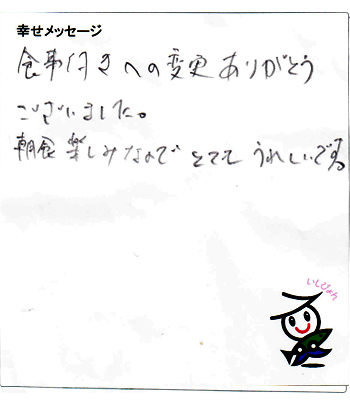 幸せメッセージ
食事付きへの変更ありがとう
ございました。
朝食楽しみなので とても うれしいです。
いしぴょん